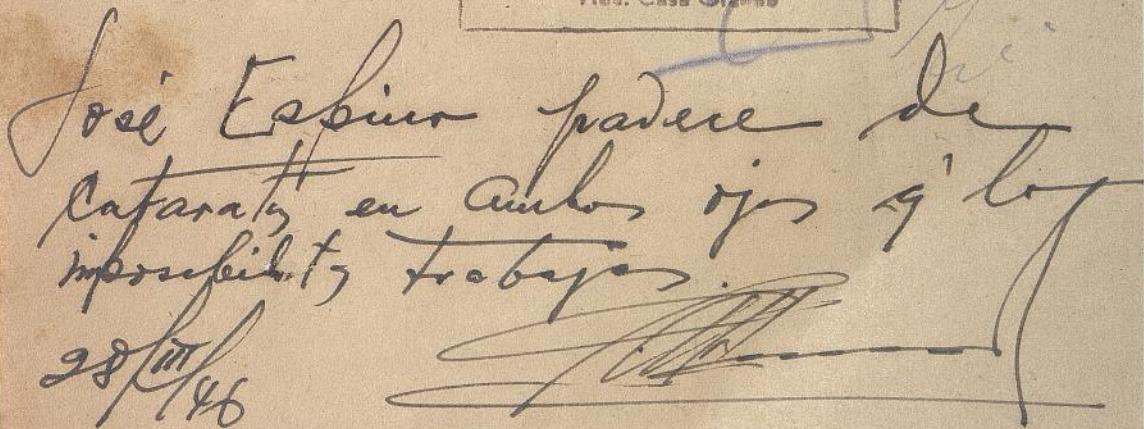 Hda. Casa Grande
José Espino padece de
cataratas en ambos ojos q' lo
imposibilita trabajar.
28/III/46